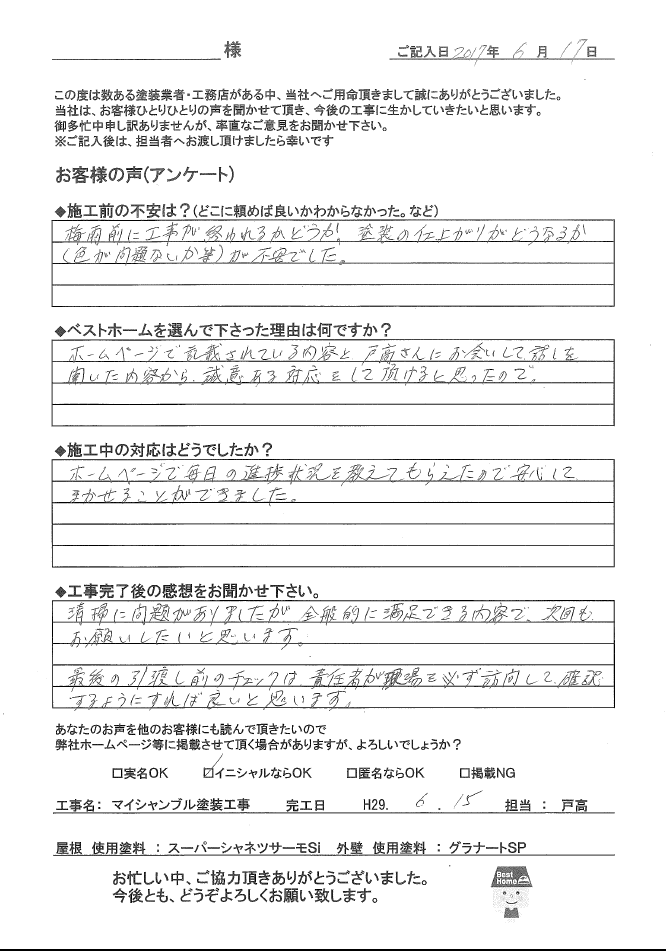 様
ご記入日 2017年 6 月 17日
この度は数ある塗装業者・工務店がある中、当社へご用命頂きまして誠にありがとうございました。
当社は、お客様ひとりひとりの声を聞かせて頂き、今後の工事に生かしていきたいと思います。
御多忙中申し訳ありませんが、率直なご意見をお聞かせ下さい。
※ご記入後は、担当者へお渡し頂けましたら幸いです
お客様の声(アンケート)
◆施工前の不安は?(どこに頼めば良いかわからなかった。など)
梅雨前に工事が終われるかどうか、塗装の仕上がりがどうなるか
(色が問題ないか等)が不安でした。
◆ベストホームを選んで下さった理由は何ですか?
ホームページで記載されている内容と戸高さんにお会いして話しを
聞いた内容から、誠意ある対応をして頂けると思ったので。
◆施工中の対応はどうでしたか?
ホームページで毎日の進捗状況を教えてもらえたので安心して
まかせることができました。
◆工事完了後の感想をお聞かせ下さい。
清掃に問題がありましたが、全般的に満足できる内容で、次回も
お願いしたいと思います。
最後の引渡し前のチェックは、責任者が現場を必ず訪向して、確認
するようにすれば良いと思います。
あなたのお声を他のお客様にも読んで頂きたいので
弊社ホームページ等に掲載させて頂く場合がありますが、よろしいでしょうか?
□実名OK ☑イニシャルならOK □匿名ならOK □掲載NG
工事名: マイシャンブル塗装工事 完工日 H29. 6 . 15 担当 : 戸高
屋根 使用塗料 : スーパーシャネツサーモSi 外壁 使用塗料 : グラナートSP
お忙しい中、ご協力頂きありがとうございました。
今後とも、どうぞよろしくお願い致します。
Best
Home